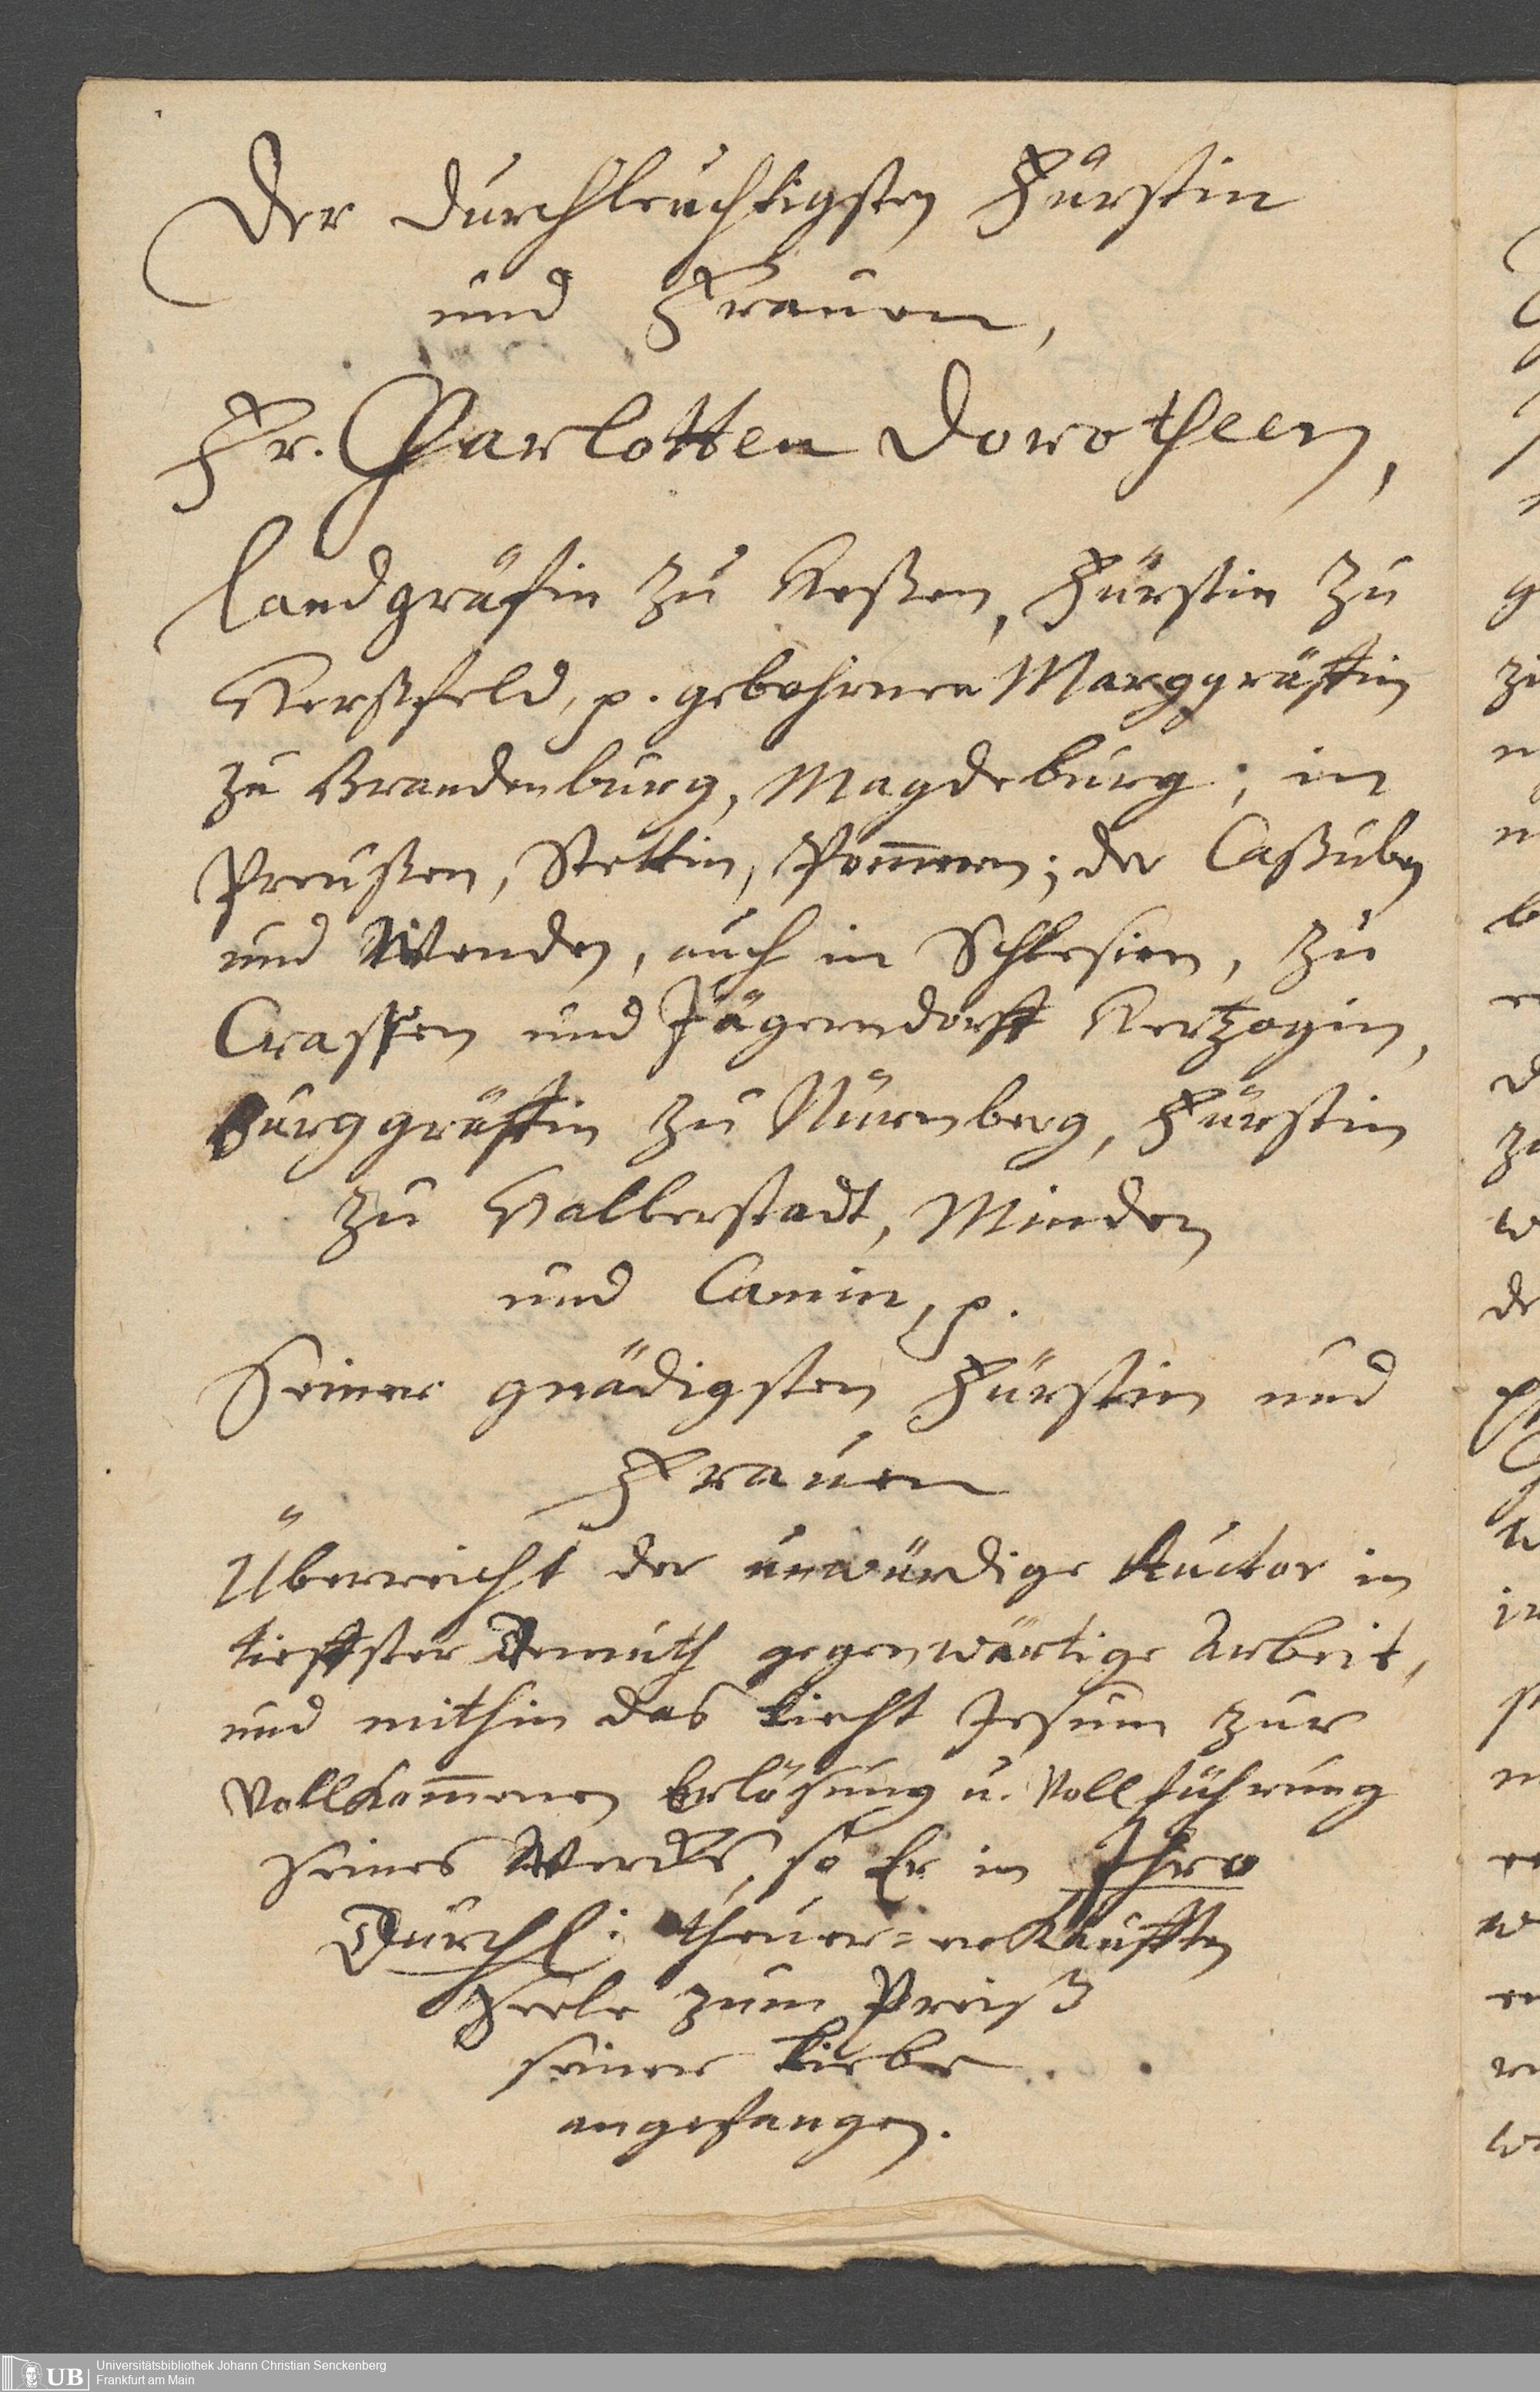 Der Durchleuchtigsten Fürstin
und Frauen,
Fr. Charlotten Dorotheen,
Landgräfin zu Heßen, Fürstin zu
Herßfeld, p. gebohrnen Marggräffin
zu Brandenburg, Magdeburg; in
Preußen, Stettin, Pom̅ern; der Caßuben
und Wenden, auch in Schlesien, zu
Crossen und Jägerndorff Hertzogin,
Burggräffin zu Nürnberg, Fürstin
zu Halberstadt, Minden
und Camin, p.
Seiner gnädigsten Fürstin und
Frauen
Überreicht der unwürdige Auctor in
tieffster Demuth gegenwärtige Arbeit,
und mithin das Licht Jesum zur
Vollkom̅enen Erlösung u. Vollführung
seines Wercks, so Er in Ihro
Durchl: theuer-erkaufften
Seele zum Preiß
seiner Liebe
angefangen.
UB
Universitätsbibliothek Johann Christian Senckenberg
Frankfurt am Main